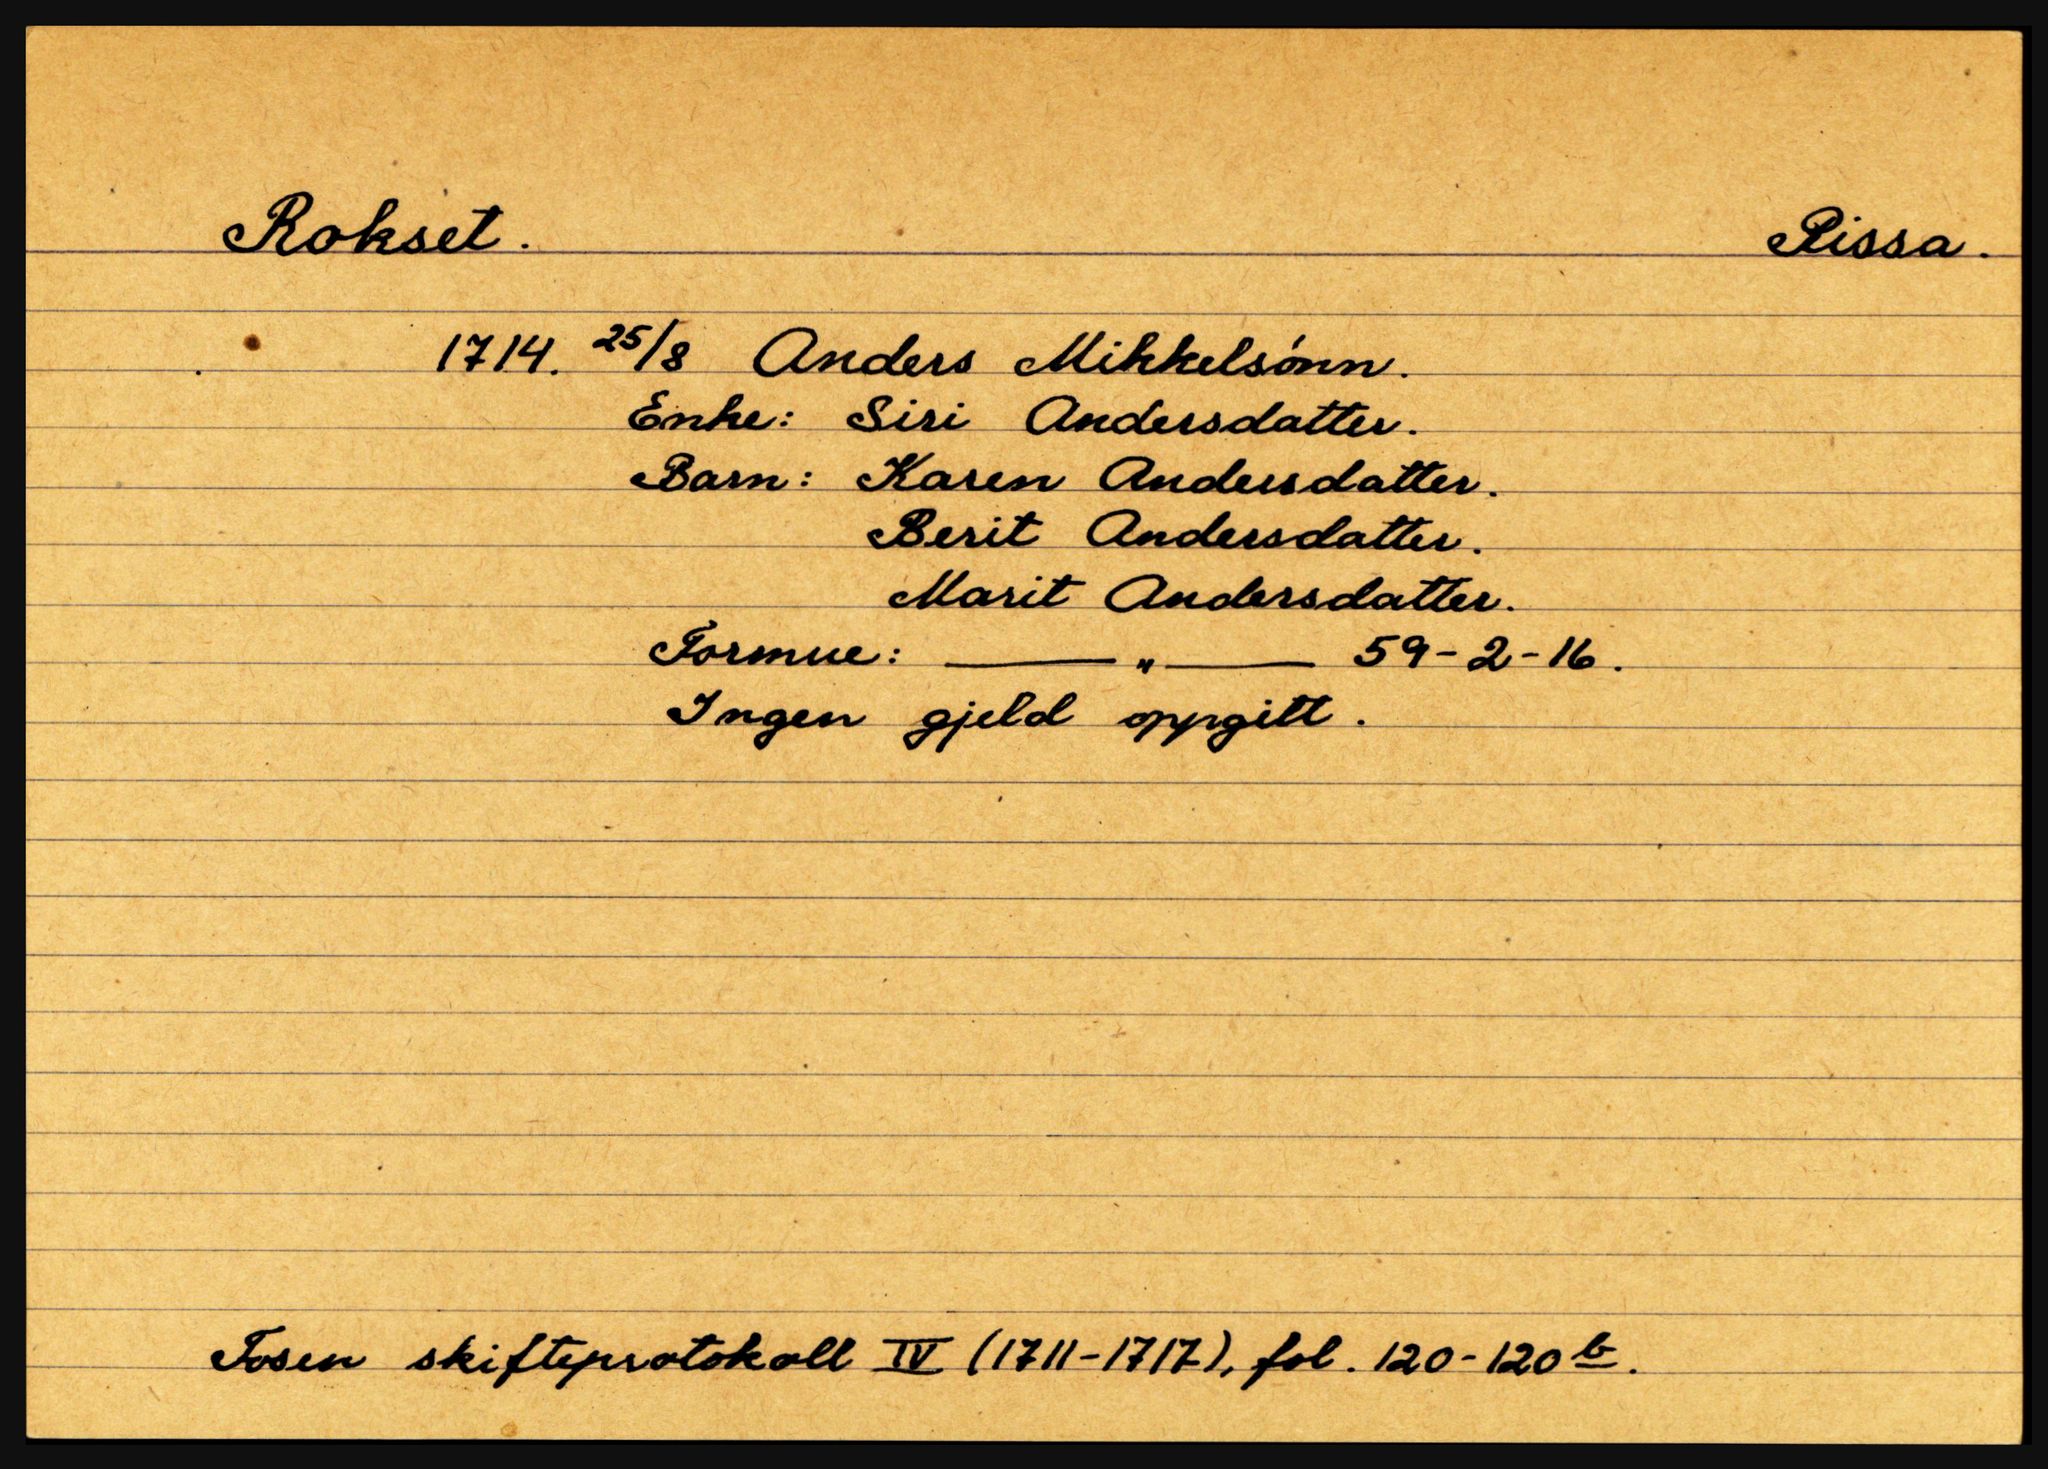 Rokset. Rissa.
1714. 25/8 Anders Mikkelsónn.
Enke: Siri Andersdatter.
Barn: Karen Andersdatter.
Berit Andersdatter.
Marit Andersdatter.
Formue: —— " —— 59-2-16.
Ingen gjeld oppgitt.
Fosen skifteprotokoll IV (1711-1717), fol. 120-120 b.